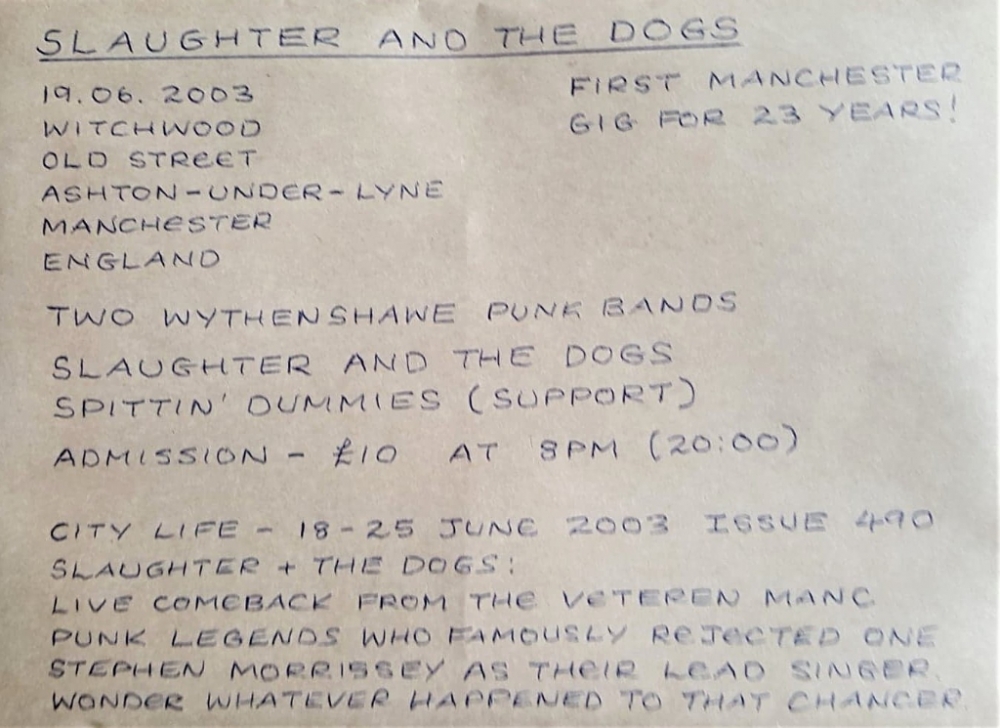 SLAUGHTER AND THE DOGS
19.06.2003
WITCHWOOD
OLD STREET
ASHTON-UNDER-LYNE
MANCHESTER
ENGLAND
FIRST MANCHESTER
GIG FOR 23 YEARS!
TWO WYTHENSHAWE PUNK BANDS
SLAUGHTER AND THE DOGS
SPITTIN' DUMMIES (SUPPORT)
ADMISSION - £10 AT 8PM (20:00)
CITY LIFE - 18-25 JUNE 2003 ISSUE 490
SLAUGHTER + THE DOGS:
LIVE COMEBACK FROM THE VETEREN MANC
PUNK LEGENDS WHO FAMOUSLY REJECTED ONE
STEPHEN MORRISSEY AS THEIR LEAD SINGER.
WONDER WHATEVER HAPPENED TO THAT CHANCER.